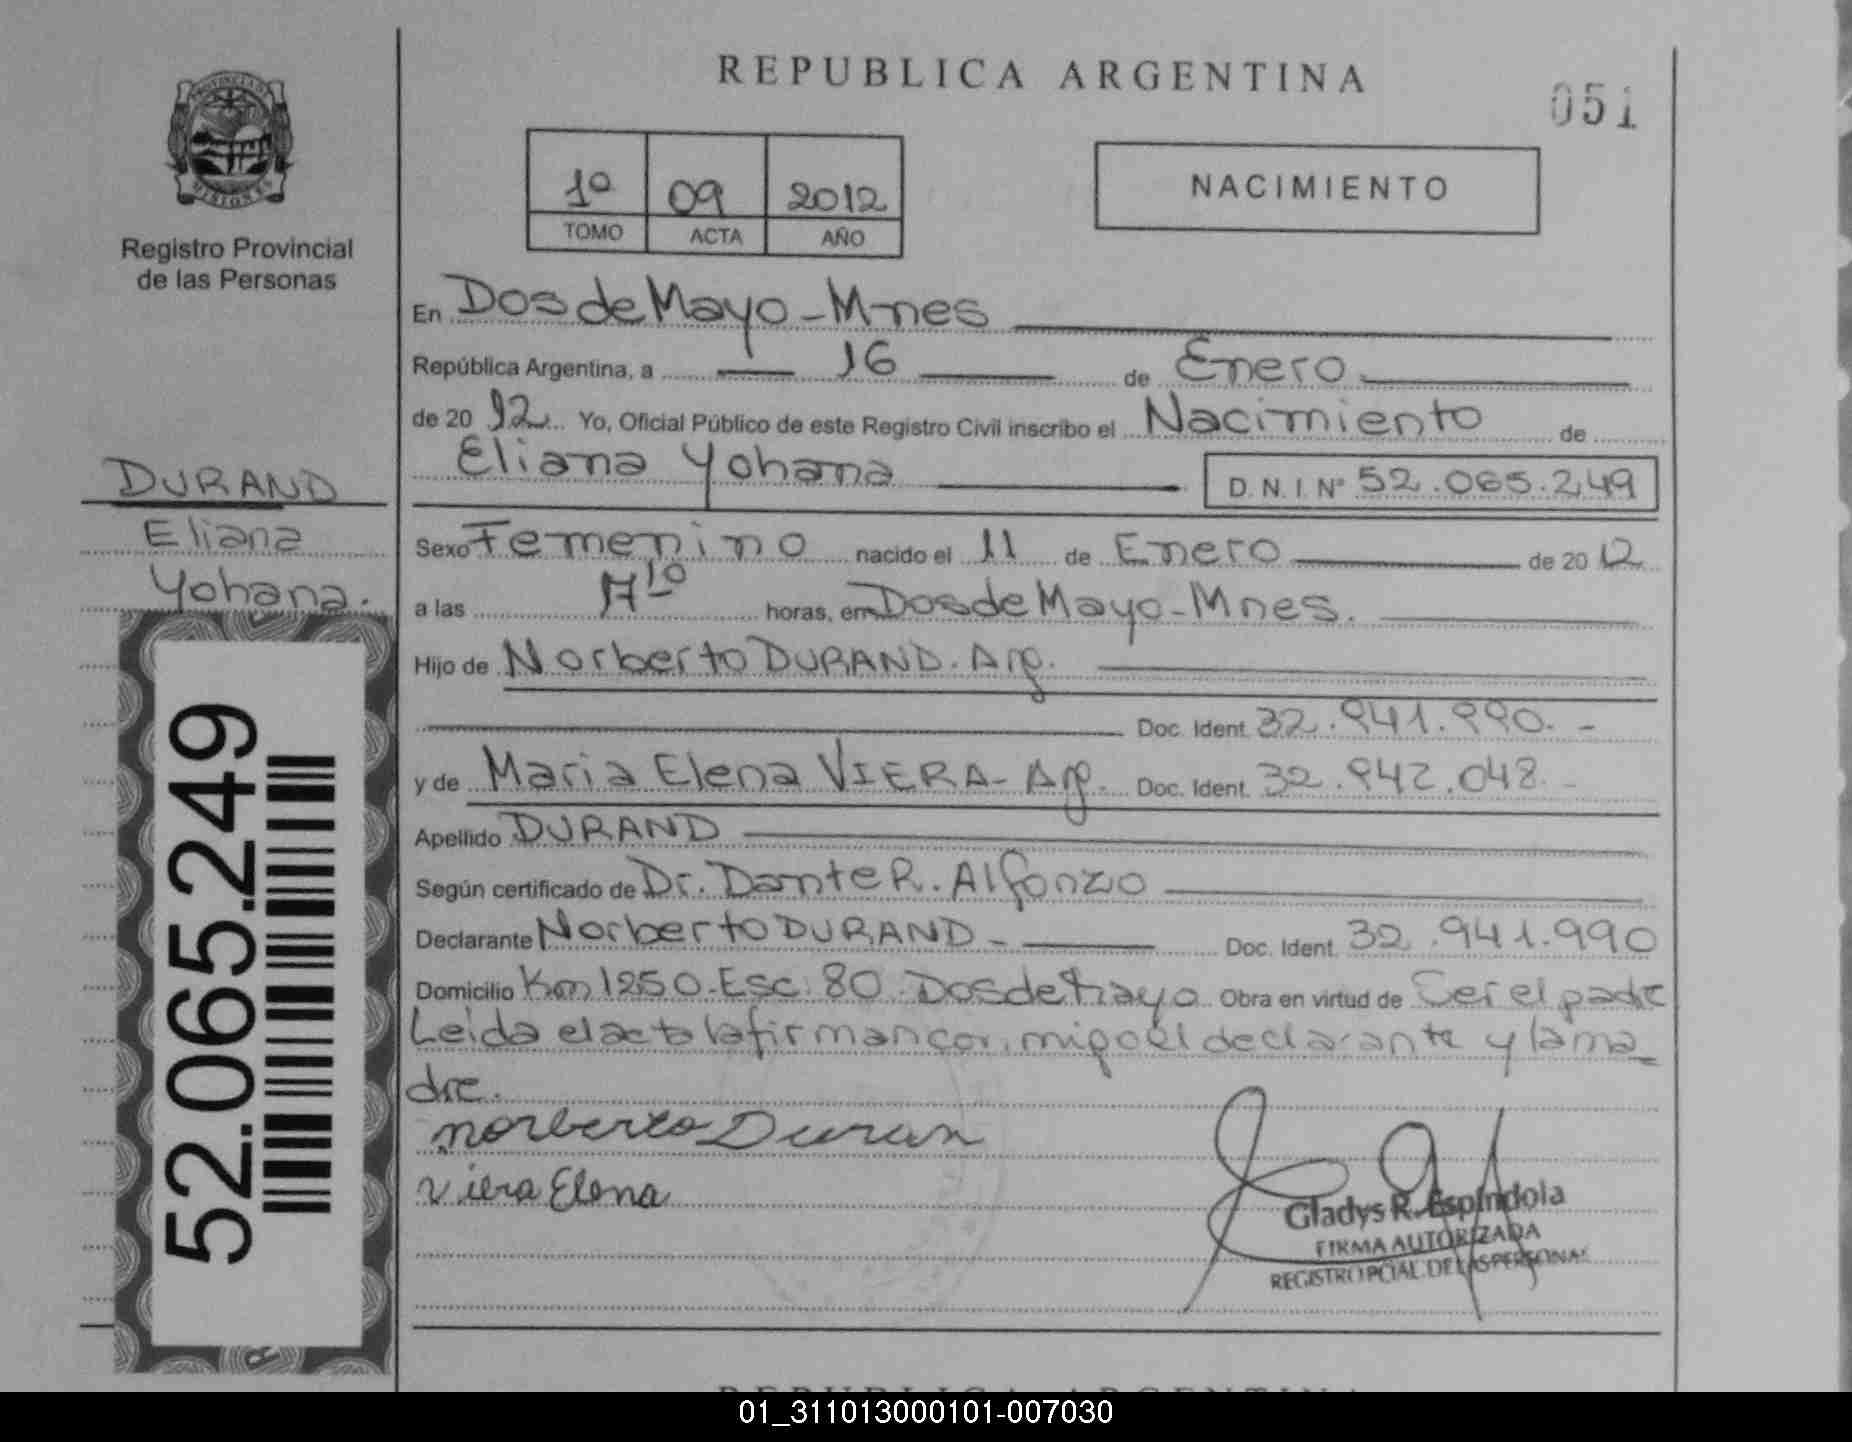 REPUBLICA ARGENTINA
051
PROVINCIA DE MISIONES
Registro Provincial
de las Personas
1º 09 2012
TOMO ACTA AÑO
NACIMIENTO
En Dos de Mayo - Mnes
República Argentina, a 16 de Enero
de 2012 Yo, Oficial Público de este Registro Civil inscribo el Nacimiento de
Eliana Yohana D.N.I. Nº 52.065.249
DURAND
Eliana
Yohana.
52.065.249
Sexo Femenino nacido el 11 de Enero de 2012
a las 17 10 horas, en Dos de Mayo - Mnes.
Hijo de Norberto DURAND. Arg.
Doc. Ident. 32.941.990. -
y de Maria Elena VIERA - Arg. Doc. Ident. 32.942.048. -
Apellido DURAND
Según certificado de Dr. Dante R. Alfonzo
Declarante Norberto DURAND - Doc. Ident. 32.941.990
Domicilio Km 1250. Esc: 80. Dos de Mayo Obra en virtud de Ser el padre
Leida el acta la firman con migo el declarante y la ma_
dre.
norberto Duran
Viera Elena
Gladys R. Espindola
FIRMA AUTORIZADA
REGISTRO PCIAL. DE LAS PERSONAS
REPUBLICA ARGENTINA
01_311013000101-007030